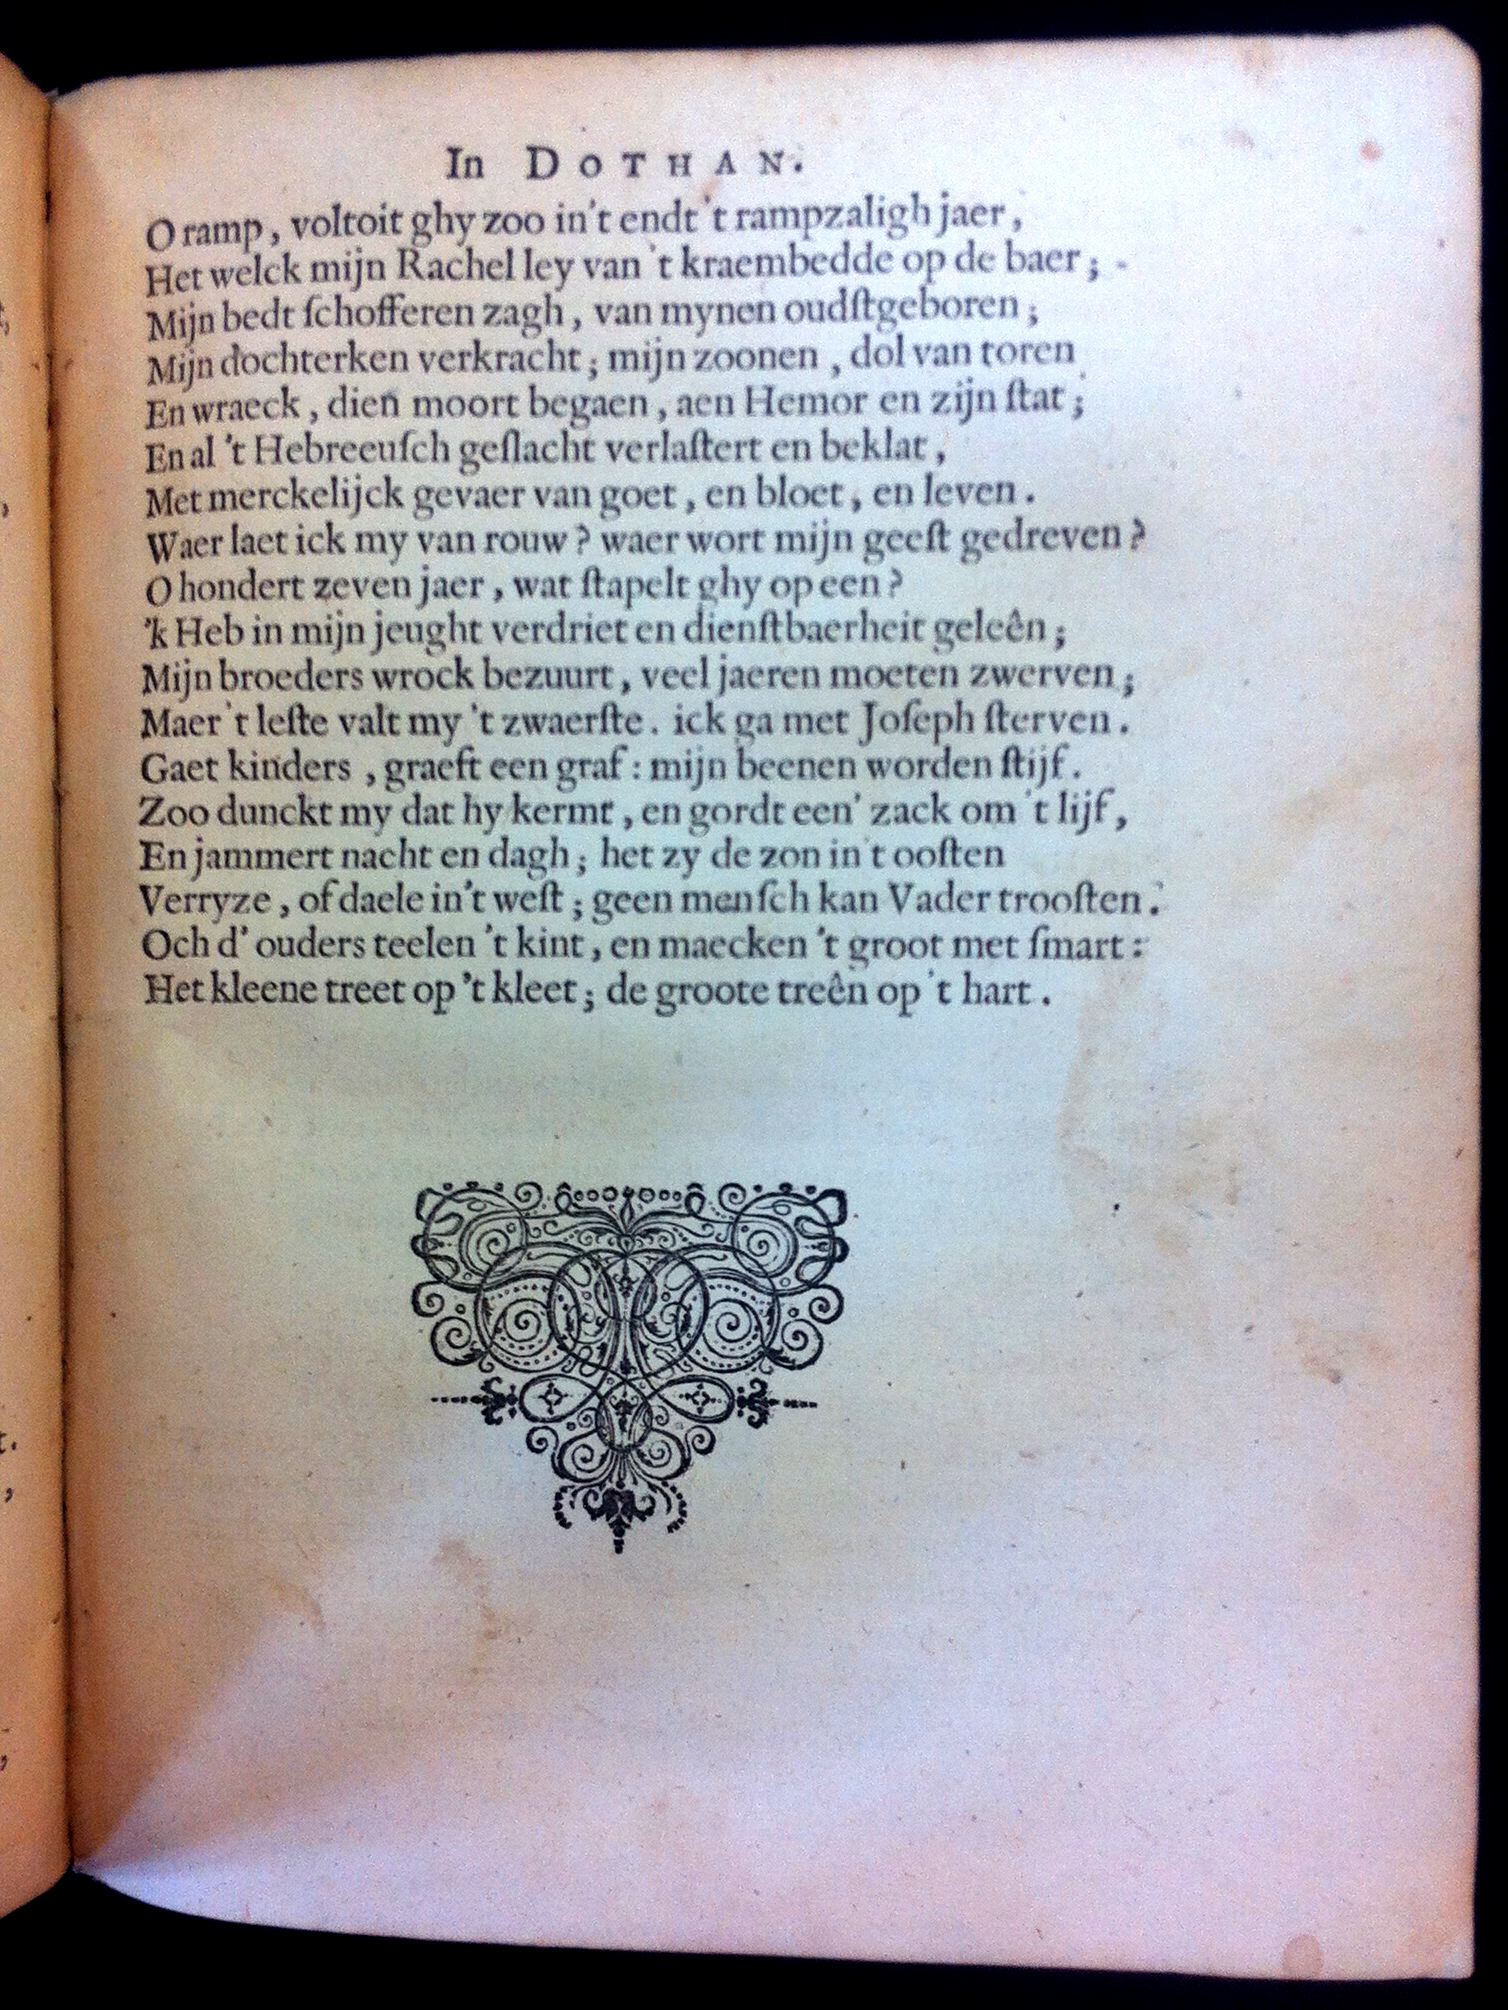 In DOTHAN.
O ramp, voltoit ghy zoo in't endt 't rampzaligh jaer,
Het welck mijn Rachel ley van 't kraembedde op de baer;
Mijn bedt ſchofferen zagh, van mynen oudſtgeboren;
Mijn dochterken verkracht; mijn zoonen, dol van toren
En wraeck, dien moort begaen, aen Hemor en zijn ſtat;
En al 't Hebreeuſch geſlacht verlaſtert en beklat,
Met merckelijck gevaer van goet, en bloet, en leven.
Waer laet ick my van rouw? waer wort mijn geeſt gedreven?
O hondert zeven jaer, wat ſtapelt ghy op een?
'k Heb in mijn jeught verdriet en dienſtbaerheit geleên;
Mijn broeders wrock bezuurt, veel jaeren moeten zwerven;
Maer 't leſte valt my 't zwaerſte. ick ga met Joſeph ſterven.
Gaet kinders, graeft een graf: mijn beenen worden ſtijf.
Zoo dunckt my dat hy kermt, en gordt een' zack om 't lijf,
En jammert nacht en dagh; het zy de zon in 't ooſten
Verryze, of daele in't weſt; geen menſch kan Vader trooſten.
Och d' ouders teelen 't kint, en maecken 't groot met ſmart:
Het kleene treet op 't kleet; de groote treên op 't hart.